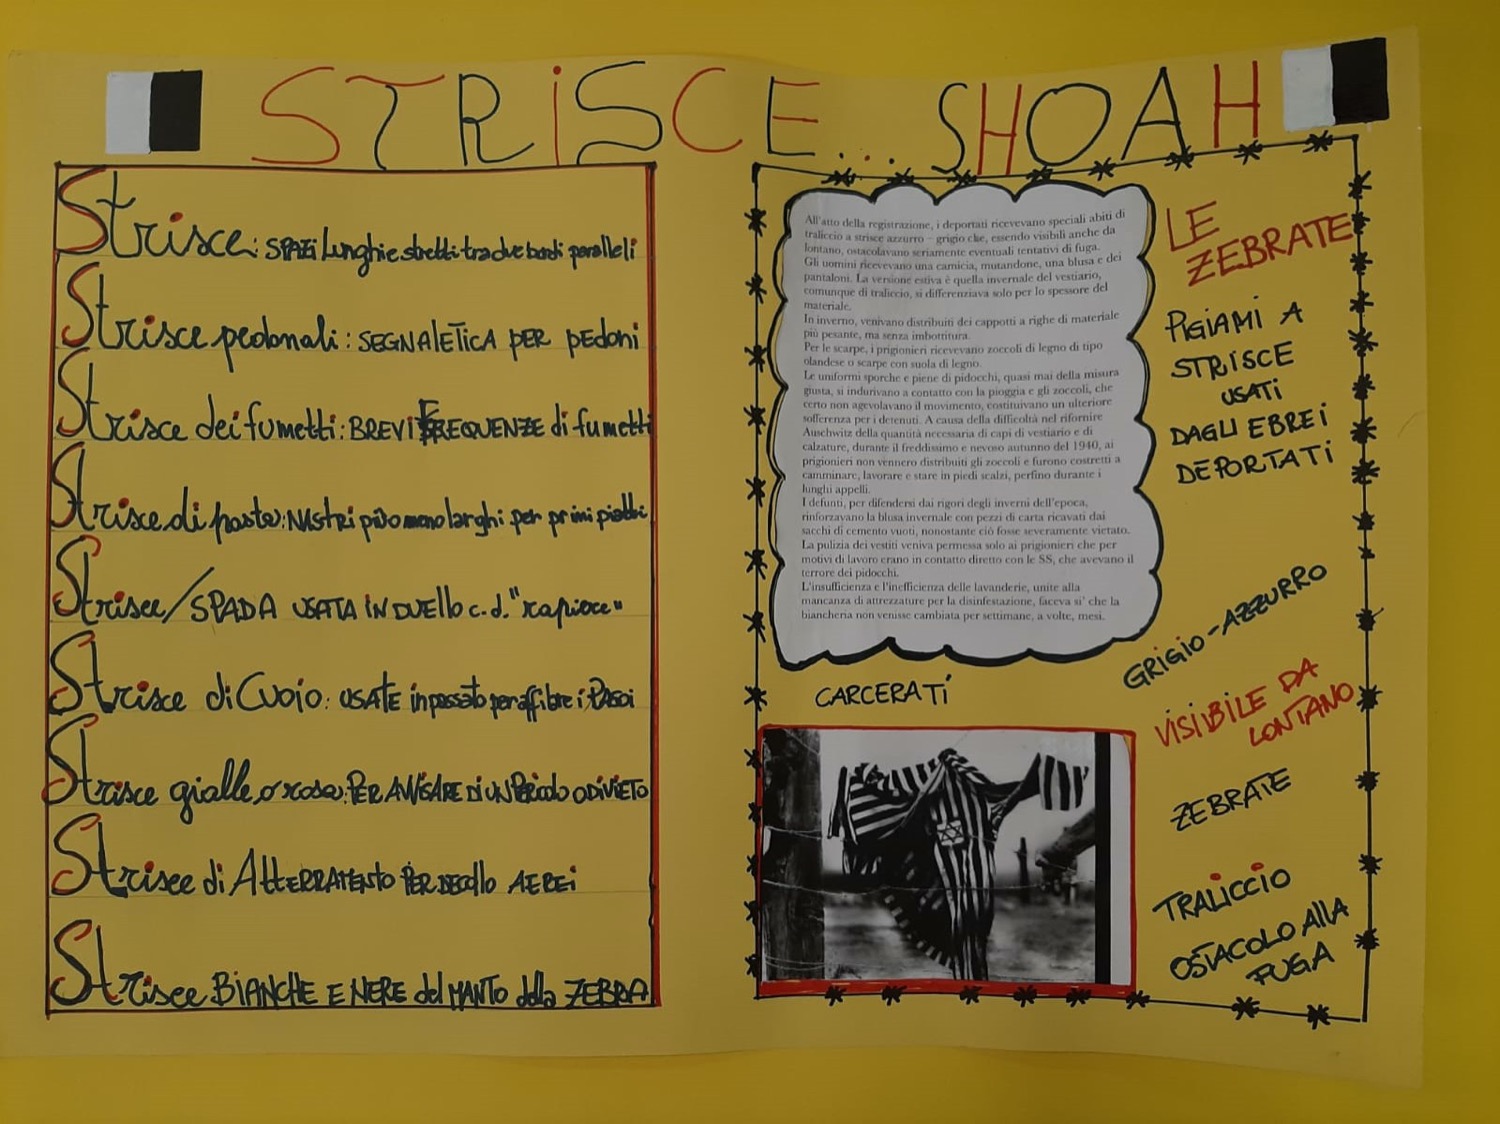 STRISCE... SHOAH
Strisce: SPAZI lunghi e stretti tra due bordi paralleli
Strisce pedonali: SEGNALETICA PER pedoni
Strisce dei fumetti: BREVI FREQUENZE di fumetti
Strisce di pasta: NASTRI più o meno larghi per primi piatti
Strisce/SPADA USATA IN DUELLO c.d. "rapiere"
Strisce di Cuoio: USATE in passato per affibbiare i
Strisce gialle o rosa: PER AVVISARE DI UN PERicolo O DIVIETO
Strisce di ATTERRAMENTO PER DECOLLO AEREI
Strisce BIANCHE E NERE del MANTO della ZEBRA
All'atto della registrazione, i deportati ricevevano speciali abiti di
traliccio a strisce azzurro – grigio che, essendo visibili anche da
lontano, ostacolavano seriamente eventuali tentativi di fuga.
Gli uomini ricevevano una camicia, mutandone, una blusa e dei
pantaloni. La versione estiva è quella invernale del vestiario,
comunque di traliccio, si differenziava solo per lo spessore del
materiale.
In inverno, venivano distribuiti dei cappotti a righe di materiale
più pesante, ma senza imbottitura.
Per le scarpe, i prigionieri ricevevano zoccoli di legno di tipo
olandese o scarpe con suola di legno.
Le uniformi sporche e piene di pidocchi, quasi mai della misura
giusta, si indurivano a contatto con la pioggia e gli zoccoli, che
certo non agevolavano il movimento, costituivano un ulteriore
sofferenza per i detenuti. A causa della difficoltà nel rifornire
Auschwitz della quantità necessaria di capi di vestiario e di
calzature, durante il freddissimo e nevoso autunno del 1940, ai
prigionieri non vennero distribuiti gli zoccoli e furono costretti a
camminare, lavorare e stare in piedi scalzi, perfino durante i
lunghi appelli.
I defunti, per difendersi dai rigori degli inverni dell'epoca,
rinforzavano la blusa invernale con pezzi di carta ricavati dai
sacchi di cemento vuoti, nonostante ciò fosse severamente vietato.
La pulizia dei vestiti veniva permessa solo ai prigionieri che per
motivi di lavoro erano in contatto diretto con le SS, che avevano il
terrore dei pidocchi.
L'insufficienza e l'inefficienza delle lavanderie, unite alla
mancanza di attrezzature per la disinfestazione, faceva si' che la
biancheria non venisse cambiata per settimane, a volte, mesi.
CARCERATI
LE
ZEBRATE
PIGIAMI A
STRISCE
USATI
DAGLI EBREI
DEPORTATI
GRIGIO-AZZURRO
VISIBILE DA
LONTANO
ZEBRATE
TRALICCIO
OSTACOLO ALLA
FUGA